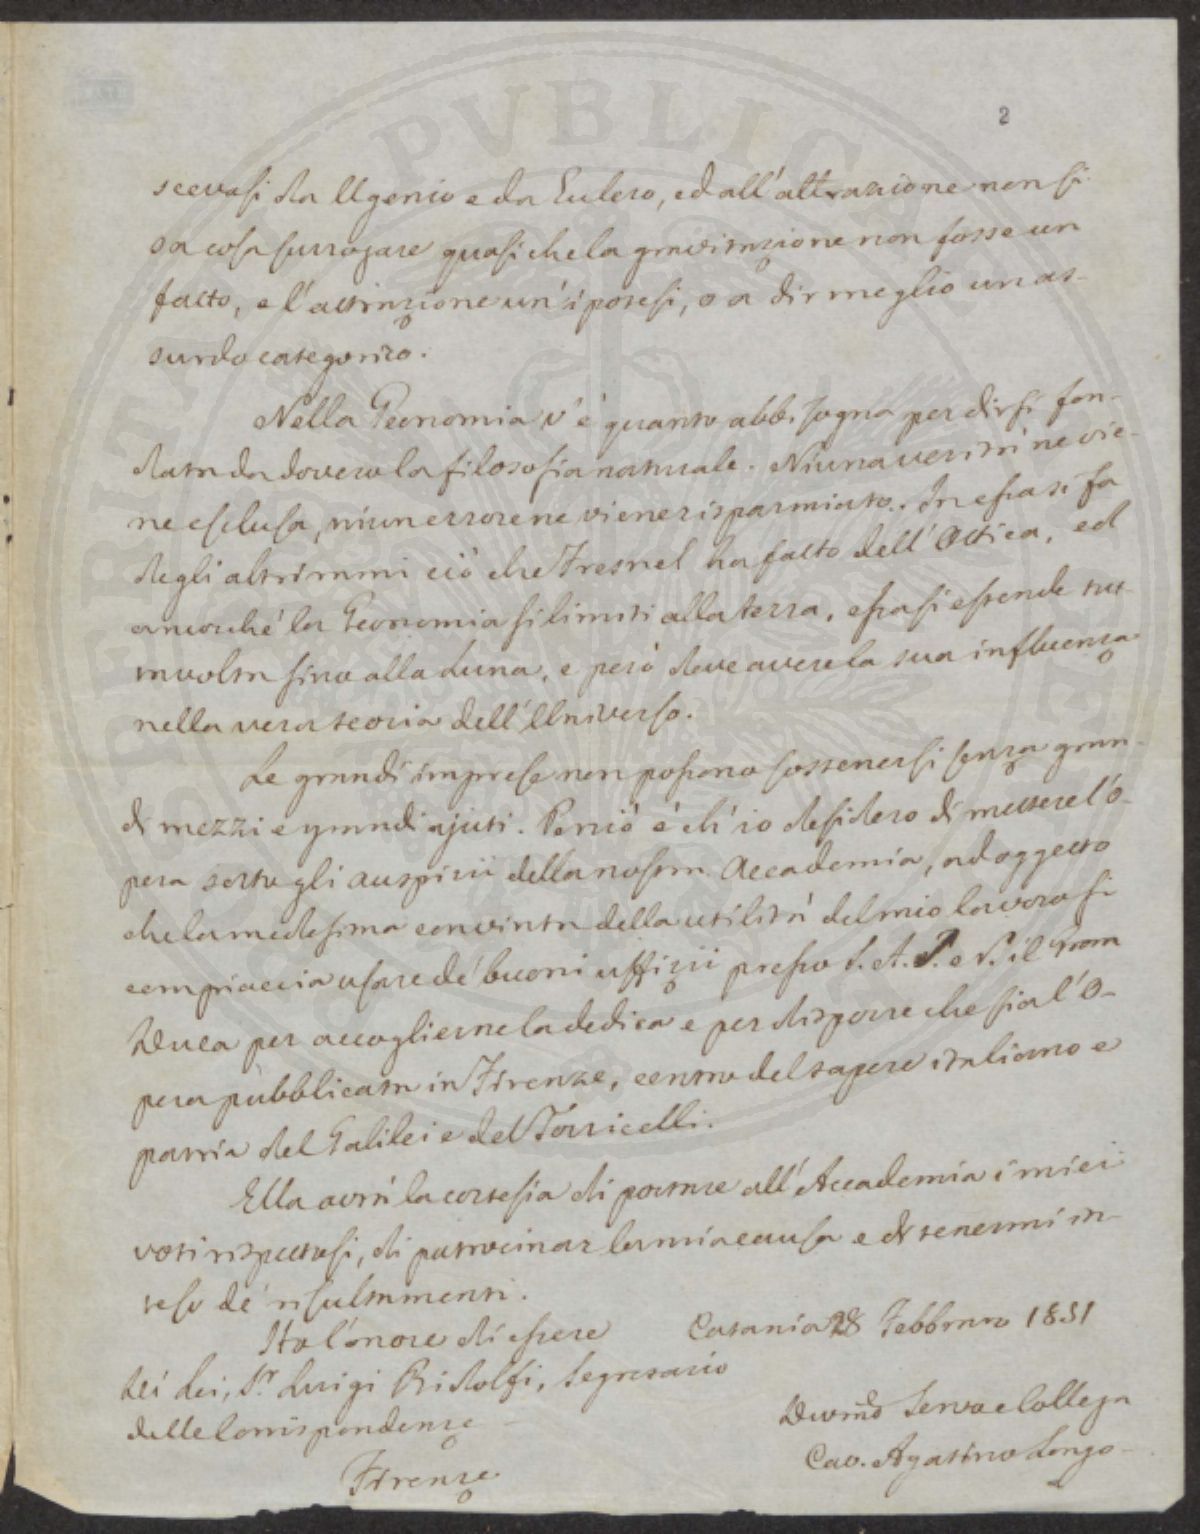 2
scevasi da Ugenio e da Eulero, ed all'attrazione non si
sa cosa surrogare quasi che la gravitazione non fosse un
fatto, e l'attrazione un'ipotesi, o a dir meglio un as-
surdo categorico.
Nella Geonomia v'è quanto abbisogna per dirsi fon-
data da dovero la filosofia naturale. Niuna verità ne vie-
ne esclusa, niun errore ne viene risparmiato. In essa si fa
degli altri rami ciò che Fresnel ha fatto dell'Ottica, ed
ancorché la Geonomia si limiti alla terra, essa si estende tut-
tavolta sino alla Luna, e però deve avere la sua influenza
nella vera teoria dell'Universo.
Le grandi imprese non possono sostenersi senza gran-
di mezzi e grandi ajuti. Perciò è ch'io desidero di mettere l'o-
pera sotto gli auspicii della nostra Accademia, ad oggetto
che la medesima convinta della utilità del mio lavoro si
compiaccia usare de' buoni uffizii presso S. A. I. e R. il Gran
Duca per accogliere la dedica e per disporre che sia l'O-
pera pubblicata in Firenze, centro del sapere italiano e
patria del Galilei e del Torricelli.
Ella avrà la cortesia di portare all'Accademia i miei
voti rispettosi, di patrocinar la mia causa e di tenermi in-
teso de' risultamenti.
Ho l'onore di essere
Catania 28 Febbraro 1851
Di Lei, Sr. Luigi Ridolfi, Segretario
delle Corrispondenze
Firenze
Devmo Servo e Collega
Cav. Agatino Longo
PVBLICA